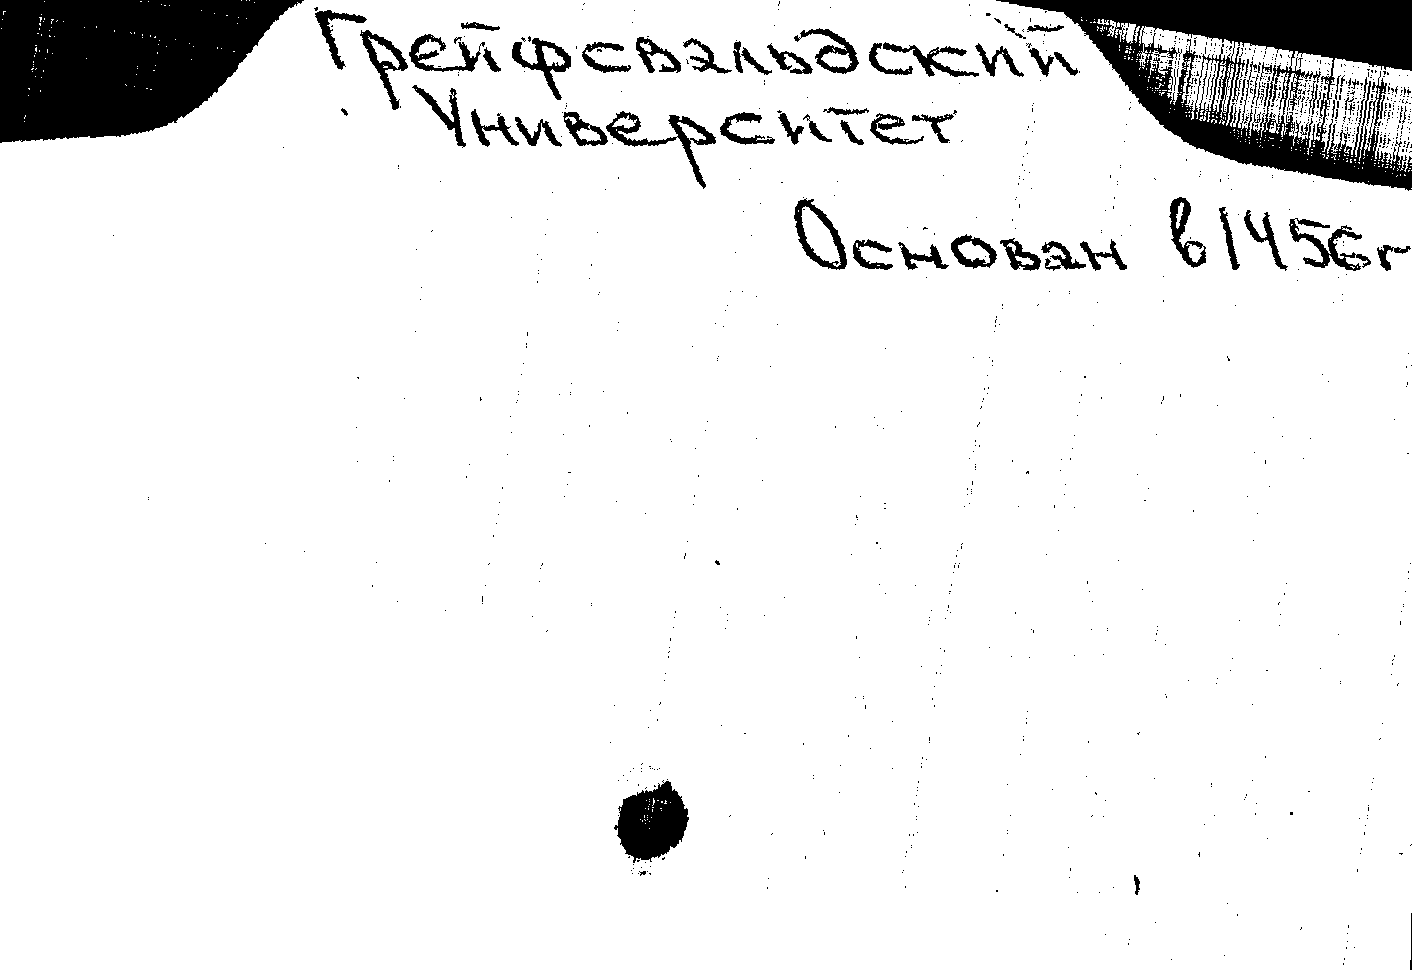 Грейфсвальдский
Университет
Основан в 1456г